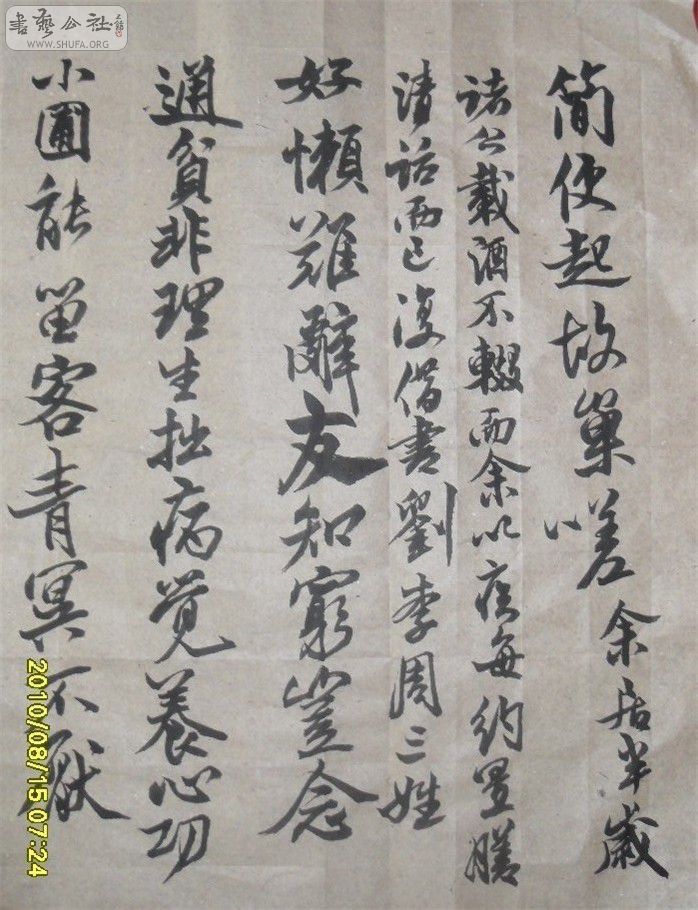 簡便起故巢嗟余居半歲
諸公載酒不輟而余以疾每約置膳
清話而已復借書劉李周三姓
好懶難辭友知窮豈念
通貧非理生拙病覺養心功
小圃能留客青冥不厭
書藝公社
WWW.SHUFA.ORG
2010/08/15 07:24